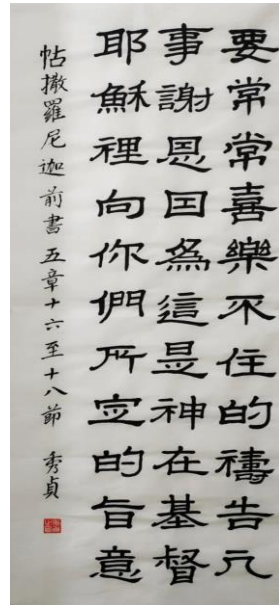 要常常喜樂不住的禱告凡
事謝恩因為這是神在基督
耶穌裡向你們所定的旨意
帖撒羅尼迦前書五章十六至十八節 秀貞